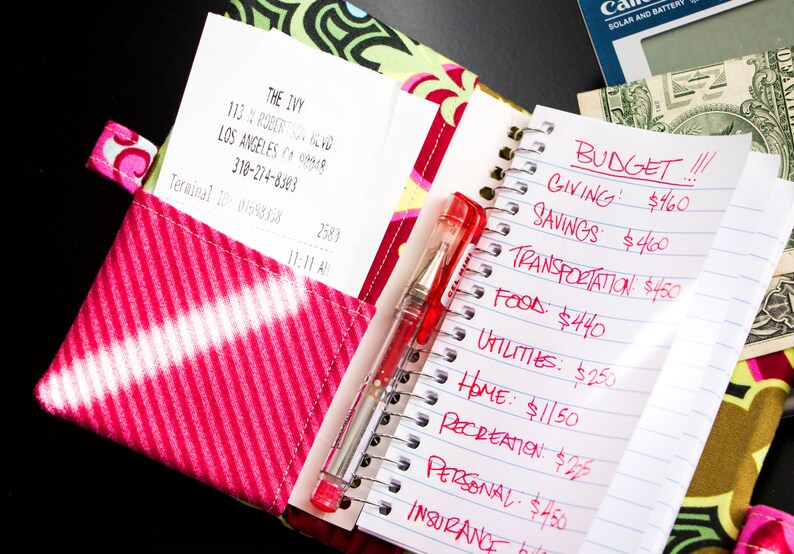 THE IVY
113 N ROBERTSON BLVD
LOS ANGELES CA 90048
310-274-8303
Terminal ID: 01698358
2580
11:11 AM
SOLAR AND BATTERY
BUDGET!!!
GIVING: $460
SAVINGS: $460
TRANSPORTATION: $450
FOOD: $440
UTILITIES: $250
HOME: $1150
RECREATION: $225
PERSONAL: $450
INSURANCE